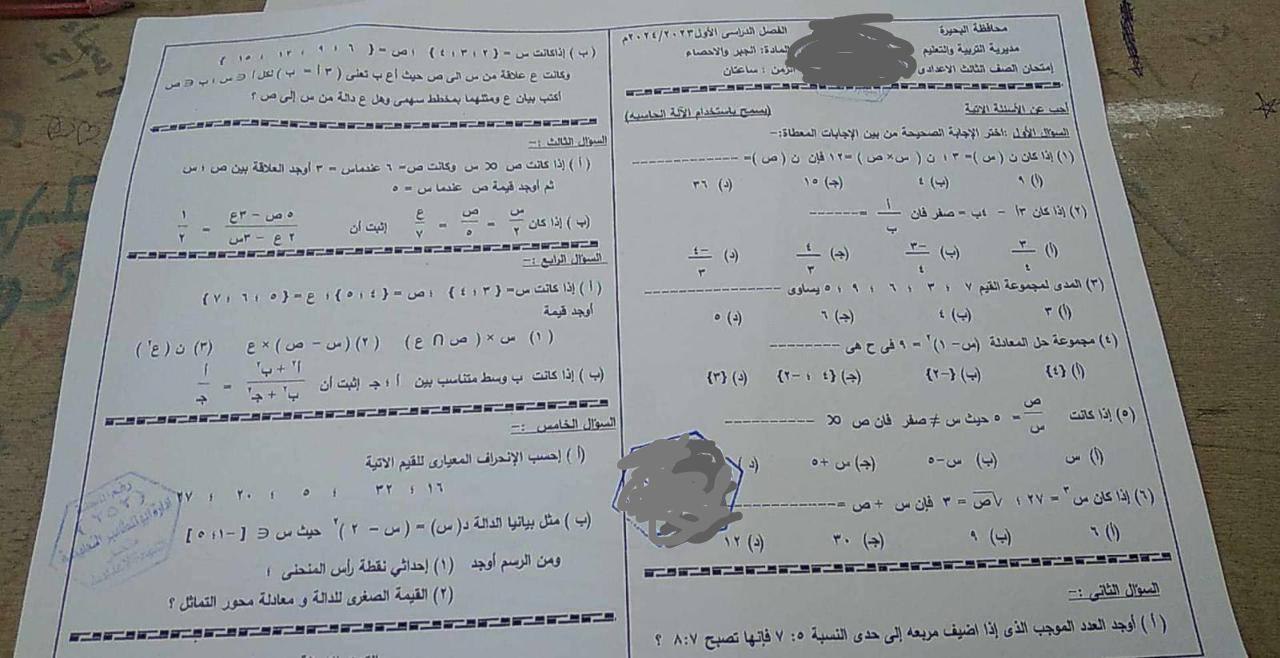 محافظة البحيرة
مديرية التربية والتعليم
إمتحان الصف الثالث الاعدادى
الفصل الدراسى الأول ٢٠٢٣/٢٠٢٤م
المادة: الجبر والاحصاء
الزمن : ساعتان
أجب عن الأسئلة الاتية (يسمح باستخدام الآلة الحاسبه)
السؤال الأول :اختر الإجابة الصحيحة من بين الإجابات المعطاة:-
(١) إذا كان ن ( س )= ٣ ، ن ( س× ص ) =١٢ فإن ن ( ص )= --------------
(أ) ٩ (ب) ٤ (جـ) ١٥ (د) ٣٦
(٢) إذا كان ٣أ - ٤ب = صفر فان أ/ب = ------
(أ) ٣/٤ (ب) -٣/٤ (جـ) ٤/٣ (د) -٤/٣
(٣) المدى لمجموعة القيم ٧ ، ٣ ، ٦ ، ٩ ، ٥ يساوى --------------
(أ) ٣ (ب) ٤ (جـ) ٦ (د) ٥
(٤) مجموعة حل المعادلة (س- ١)٢ = ٩ فى ح هى ---------
(أ) {٤} (ب) {-٢} (جـ) {٤ ، -٢} (د) {٣}
(٥) إذا كانت ص/س = ٥ حيث س ≠ صفر فان ص ∝ ----------
(أ) س (ب) س-٥ (جـ) س +٥ (د)
(٦) إذا كان س٣ = ٢٧ ، √ص = ٣ فإن س + ص =------------
(أ) ٦ (ب) ٩ (جـ) ٣٠ (د) ١٢
السؤال الثانى :-
( أ ) أوجد العدد الموجب الذى إذا اضيف مربعه إلى حدى النسبة ٥: ٧ فإنها تصبح ٨:٧ ؟
( ب ) إذاكانت س = { ٢ ، ٣ ، ٤ } ، ص = { ٦ ، ٩ ، ١٢ ، ١٥ }
وكانت ع علاقة من س الى ص حيث أ ع ب تعنى ( ٣أ = ب ) لكل أ ∈ س ، ب ∈ ص
أكتب بيان ع ومثلهما بمخطط سهمى وهل ع دالة من س إلى ص ؟
السؤال الثالث :-
( أ ) إذا كانت ص ∝ س وكانت ص= ٦ عندماس = ٣ أوجد العلاقة بين ص ، س
ثم أوجد قيمة ص عندما س = ٥
( ب ) إذا كان س/٢ = ص/٥ = ع/٧ إثبت أن ٥ ص - ٣ع / ٢ ع - ٣س = ١/٢
السؤال الرابع :-
( أ ) إذا كانت س= { ٣ ، ٤ } ، ص = { ٤ ، ٥ } ، ع = { ٥ ، ٦ ، ٧ }
أوجد قيمة
( ١ ) س × ( ص ∩ ع ) ( ٢ ) ( س - ص ) × ع ( ٣ ) ن ( ع٢ )
( ب ) إذا كانت ب وسط متناسب بين أ ، جـ إثبت أن أ٢ + ب٢ / ب٢ + جـ٢ = أ/جـ
السؤال الخامس :-
( أ ) إحسب الإنحراف المعيارى للقيم الاتية
١٦ ، ٣٢ ، ٥ ، ٢٠ ، ٢٧
( ب ) مثل بيانيا الدالة د( س) = ( س - ٢ )٢ حيث س ∈ [ -١، ٥ ]
ومن الرسم أوجد (١) إحداثي نقطة رأس المنحنى ؛
(٢) القيمة الصغرى للدالة و معادلة محور التماثل ؟